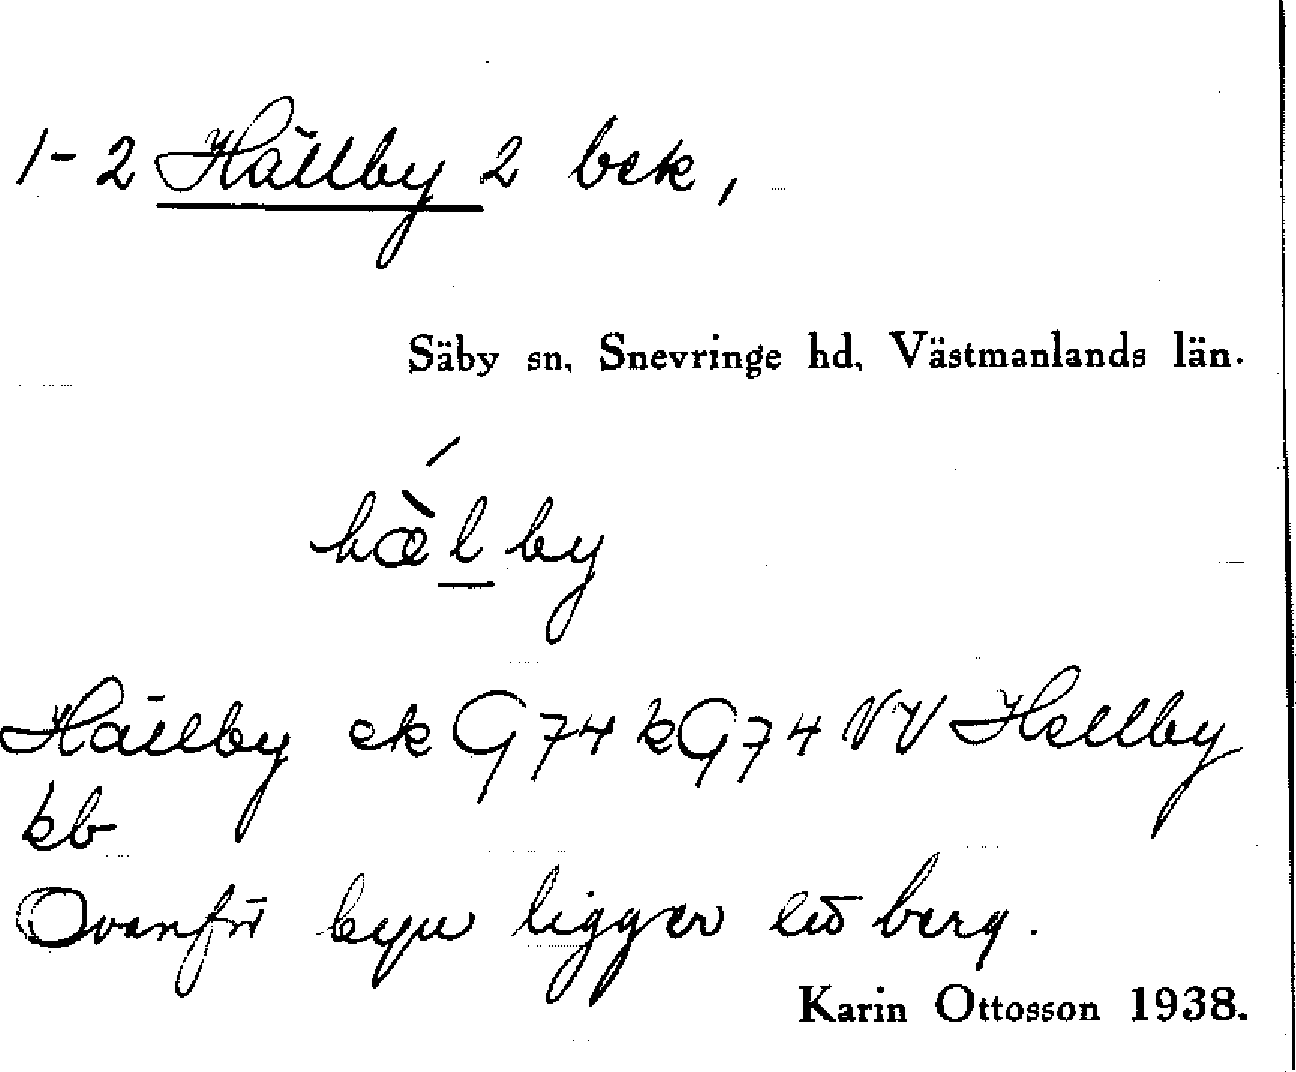 1-2 Hällby 2 bek,
Säby sn, Snevringe hd, Västmanlands län.
hæ̀l by
Hällby ek G74 kG74 VV Hellby
kb
Ovanför byn ligger ett berg.
Karin Ottosson 1938.